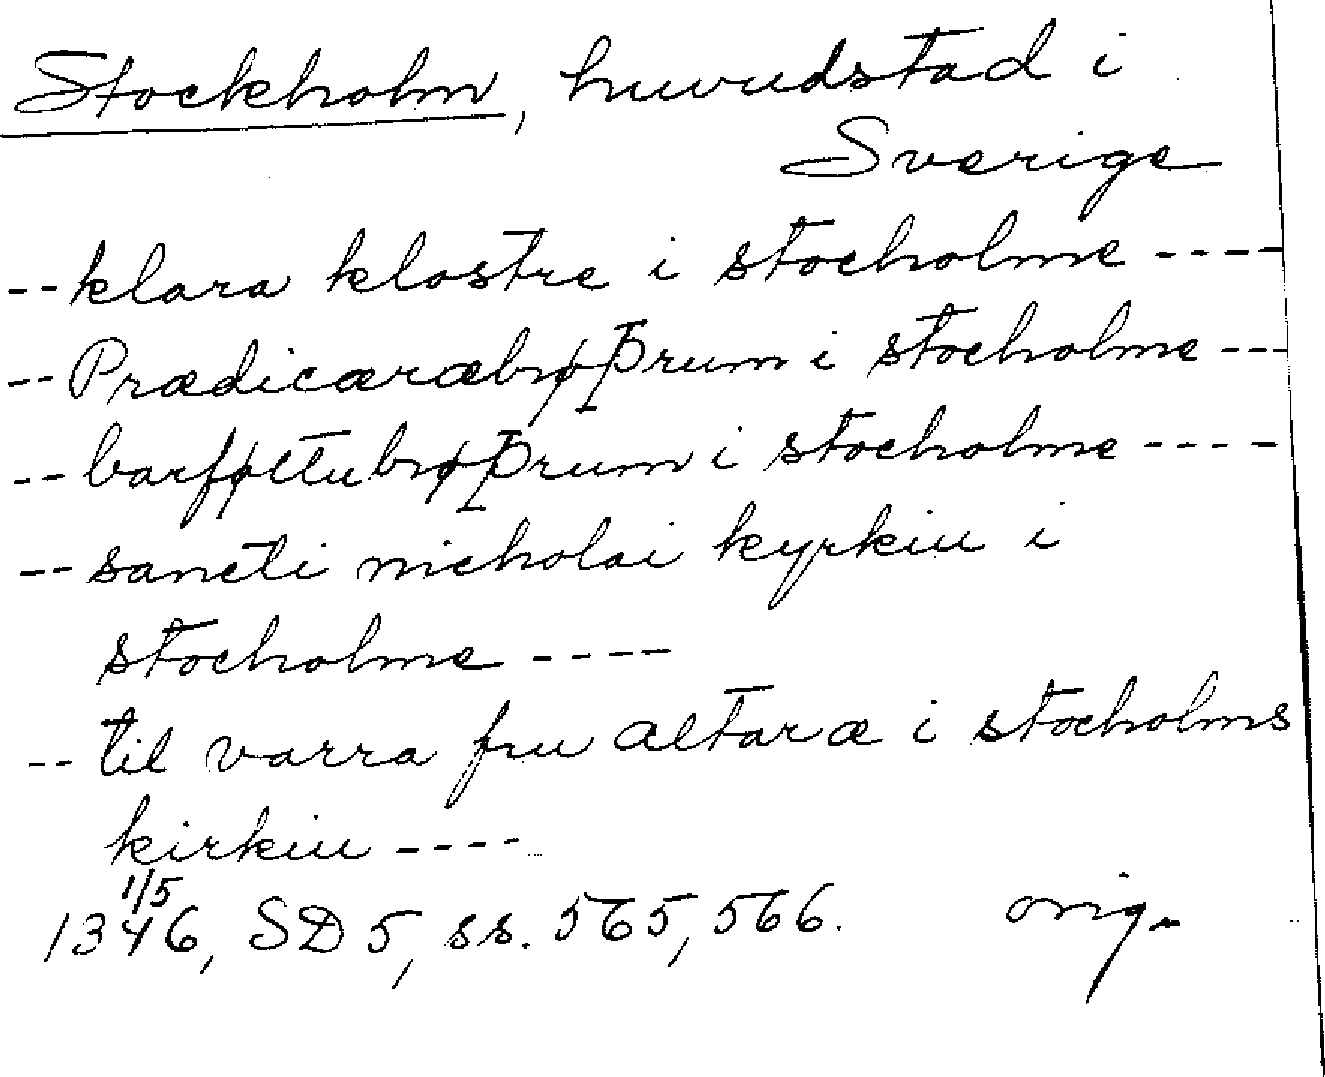 Stockholm, huvudstad i
Sverige
-- klara klostre i stocholme ----
-- Prædicæræbrøþrum i stocholme ---
-- barføttubrøþrum i stocholme ----
-- sancti nicholai kyrkiu i
stocholme ----
-- til varra fru altaræ i stocholms
kirkiu ----
1/5
1346, SD 5, ss. 565, 566. orig.